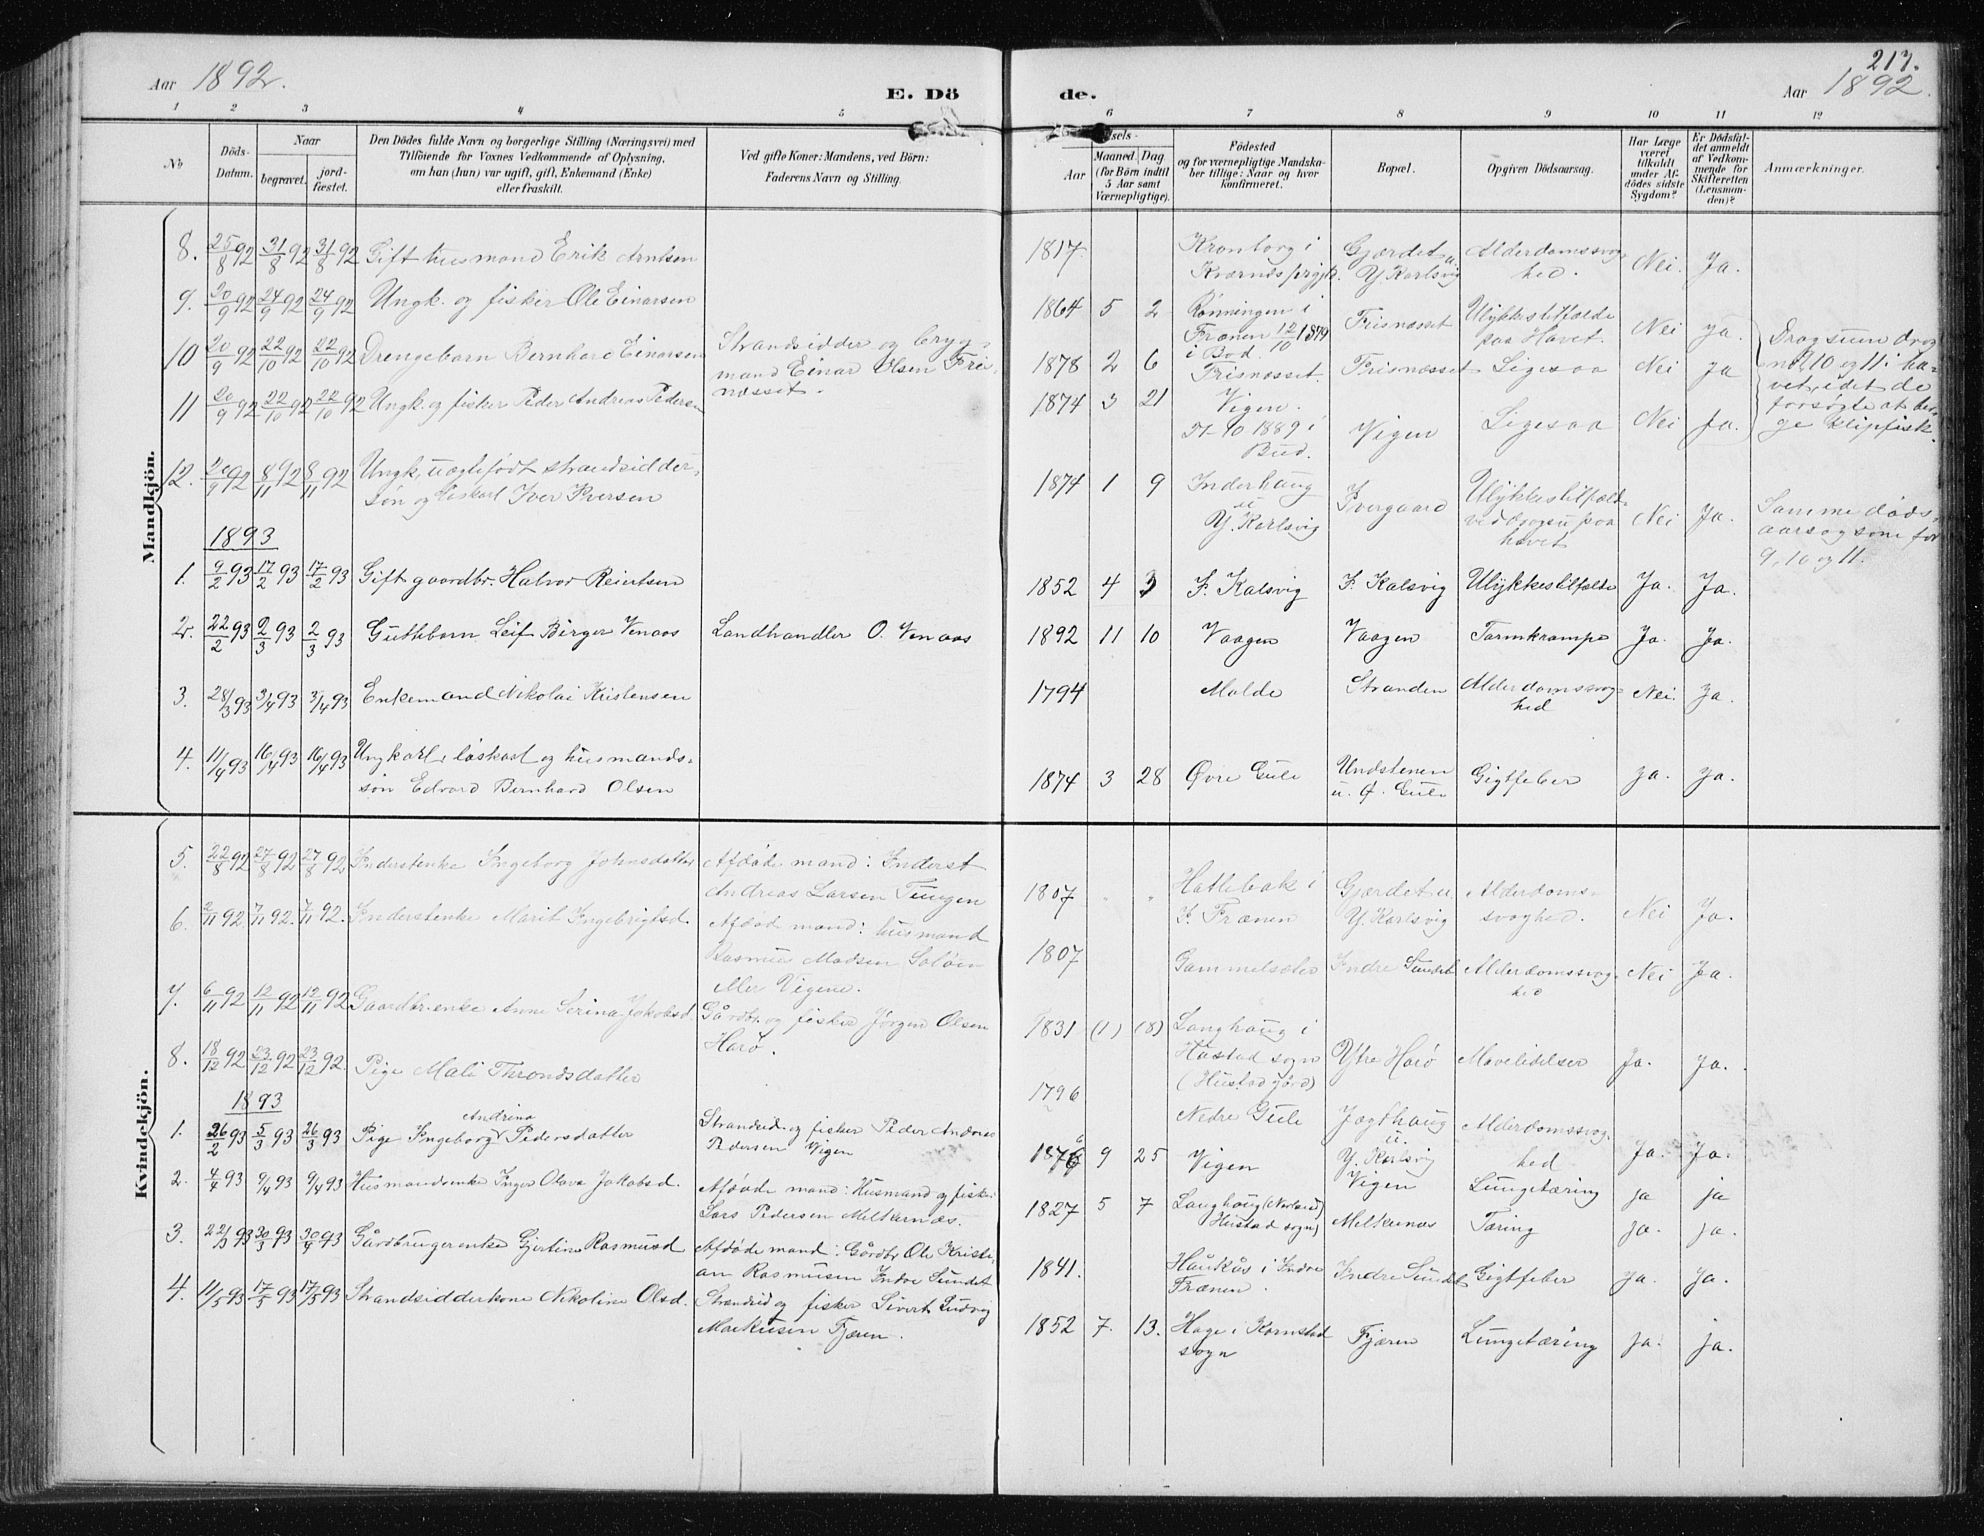 Aar 1892.
E. Dö
de.
213.
Aar 1892.
1 2 3 4 5 6 7 8 9 10 11 12
No
Döds-
Datum.
Naar
begravet.
jord-
fæstet.
Den Dödes fulde Navn og borgerlige Stilling (Næringsvei) med
Tilföiende for Voxnes Vedkommende af Oplysning,
om han (hun) var ugift, gift, Enkemand (Enke)
eller fraskilt.
Ved gifte Koner: Mandens, ved Börn:
Faderens Navn og Stilling.
dsels-
Aar
Maaned. Dag
(for Börn indtil
5 Aar samt
Værnepligtige).
Födested
og for værnepligtige Mandska-
ber tillige: Naar og hvor
konfirmeret.
Bopæl.
Opgiven Dödsaarsag.
Har Læge
været
tilkaldt
under Af-
dödes sidste
Sygdom?
Er Dödsfal-
det anmeldt
af Vedkom-
mende for
Skifteretten
(Lensman-
den)?
Anmærkninger.
Mandkjön.
8. 25/8 92 31/8 92 31/8 92 Gift husmand Erik Arntsen 1817. Kronborg i Gjærdet u. Alderdomssvag- Nei. Ja.
Kværnæs prgjl. Y. Karlsvig hed.
9. 20/9 92 24/9 92 24/9 92 Ungk. og fisker Ole Einarsen 1864 5 2 Rönningen i Frisnæsset Ulykkestilfælde Nei Ja.
Frænen 12/10 1879 paa Havet.
i Bod.
10 20/9 92 22/10 92 22/10 92 Drengebarn Bernhard Einarsen Strandsidder og bryg- 1878 2 6 Frisnæsset. Frisnæsset Ligesaa Nei Ja
mand Einar Olsen Fris-
næsset.
11 20/9 92 22/10 92 22/10 92 Ungk. og fisker Peder Andreas Pedersen 1874 3 21 Vigen. Vigen Ligesaa Nei Ja.
1889 i
Bud.
Dragsuen drog
no 9, 10 og 11 i ha-
vet, idet de
forsøgte at ber-
ge klipfisk.
12. 20/9 92 8/11 92 8/11 92 Ungk., uægtefödt strandsidder- 1874 1 9 Inderhaug Ivergaard Ulykkestilfæld- Nei Ja.
søn og løskarl Iver Iversen u Y. Karlsvig ved dragsu paa
havet
Samme döds-
aarsag som for
9, 10 og 11.
1893
1. 9/2 93 17/2 93 17/2 93 Gift gaardbr. Halvor Reiertsen 1852 4 3 I. Kalsvig I. Kalsvig Ulykkestilfælde Ja. Ja.
2. 22/2 93 2/3 93 2/3 93 Guttebarn Leif Birger Venaas Landhandler O. Venaas 1892 11 10 Vaagen Vaagen Tarmkrampe Ja. Ja.
3. 28/3 93 3/4 93 3/4 93 Enkemand Nikolai Kristensen 1794 Molde Stranden Alderdomssvag- Nei. Ja.
hed
4. 11/4 93 16/4 93 16/4 93 Ungkarl, løskarl og husmands- 1874 3 28 Øvre Gule Undstenen Gigtfeber Ja. Ja.
søn Edvard Bernhard Olsen u. Ø. Gule
Kvindekjön.
5. 22/8 92 27/8 92 27/8 92 Inderstenke Ingeborg Johnsdatter Afdøde mand: Inderst
Andreas Larsen Tungen 1807 " " Hatlebak i Gjærdet u. Alderdoms- Nei Ja.
I. Frænen Y. Karlsvig svaghed.
6. 2/11 92 7/11 92. 7/11 92. Inderstenke Marit Ingebrigtsd. Afdøde mand: husmand
Rasmus Madsen
eller Vigene. 1807 Gammelsæter Indre Sundet Alderdomssvag- Nei Ja.
hed
7. 6/11 92 12/11 92 12/11 92 Gaardbr.enke Anne Serina Jakobsd. Gårdbr. og fisker Jørgen Olsen
Harø. 1831 (1) (8) Langhaug i
Hustad sogn Ytre Harø Mavelidelser Ja. Ja.
(Hustad gård)
8. 18/12 92 23/12 92 23/12 92. Pige Mali Throndsdatter 1796 Nedre Gule Jægthaug Alderdomssvag- Ja. Ja.
u. Y. Karlsvig hed
1893
1. 26/2 93 5/3 93 26/3 93 Pige Ingeborg Andrina Pedersdatter Strandsid. og fisker Peder Andreas
Pedersen Vigen 1876 9 25 Vigen Vigen Lungetæring ja ja
2. 4/4 93 9/4 93 9/4 93 Husmandsenke Inger Olava Jakobsd. Afdøde mand: Husmand og fisker
Lars Pedersen Melkernæs. 1827 5 7 Langhaug (Norland) Melkernæs Tæring ja. ja.
Hustad sogn)
3. 22/3 93 30/3 93 30/4 93 Gårdbrugerenke Gjertine Rasmusd Afdøde mand: Gårdbr. Ole Kristi-
an Rasmusen Indre Sundet 1841. Haukås i Indre Indre Sundet Gigtfeber Ja. Ja.
Frænen.
4. 11/5 93 17/5 93 17/5 93 Strandsidderkone Nikoline Olsd. Strandsid og fisker Sivert Ludvig
Markusen Fjæren. 1852 7. 13. Hage i Kornstad Fjæren Lungetæring ja. ja.
sogn